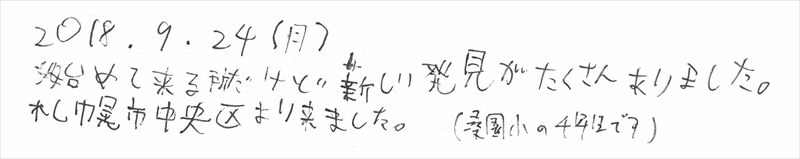 2018.9.24(月)
始めて来る所だけど新しい発見がたくさんありました。
札幌市中央区より来ました。 (桑園小の4年生です)